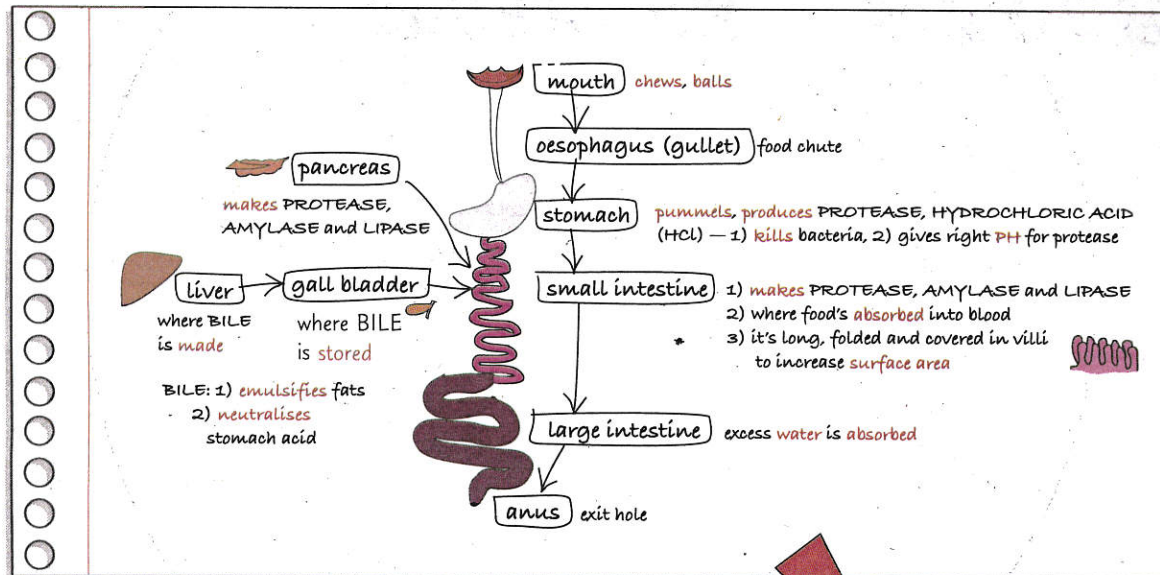 mouth chews, balls
oesophagus (gullet) food chute
pancreas
makes PROTEASE,
AMYLASE and LIPASE
stomach pummels, produces PROTEASE, HYDROCHLORIC ACID
(HCl) — 1) kills bacteria, 2) gives right PH for protease
liver
where BILE
is made
gall bladder
where BILE
is stored
BILE: 1) emulsifies fats
2) neutralises
stomach acid
small intestine 1) makes PROTEASE, AMYLASE and LIPASE
2) where food's absorbed into blood
3) it's long, folded and covered in villi
to increase surface area
large intestine excess water is absorbed
anus exit hole